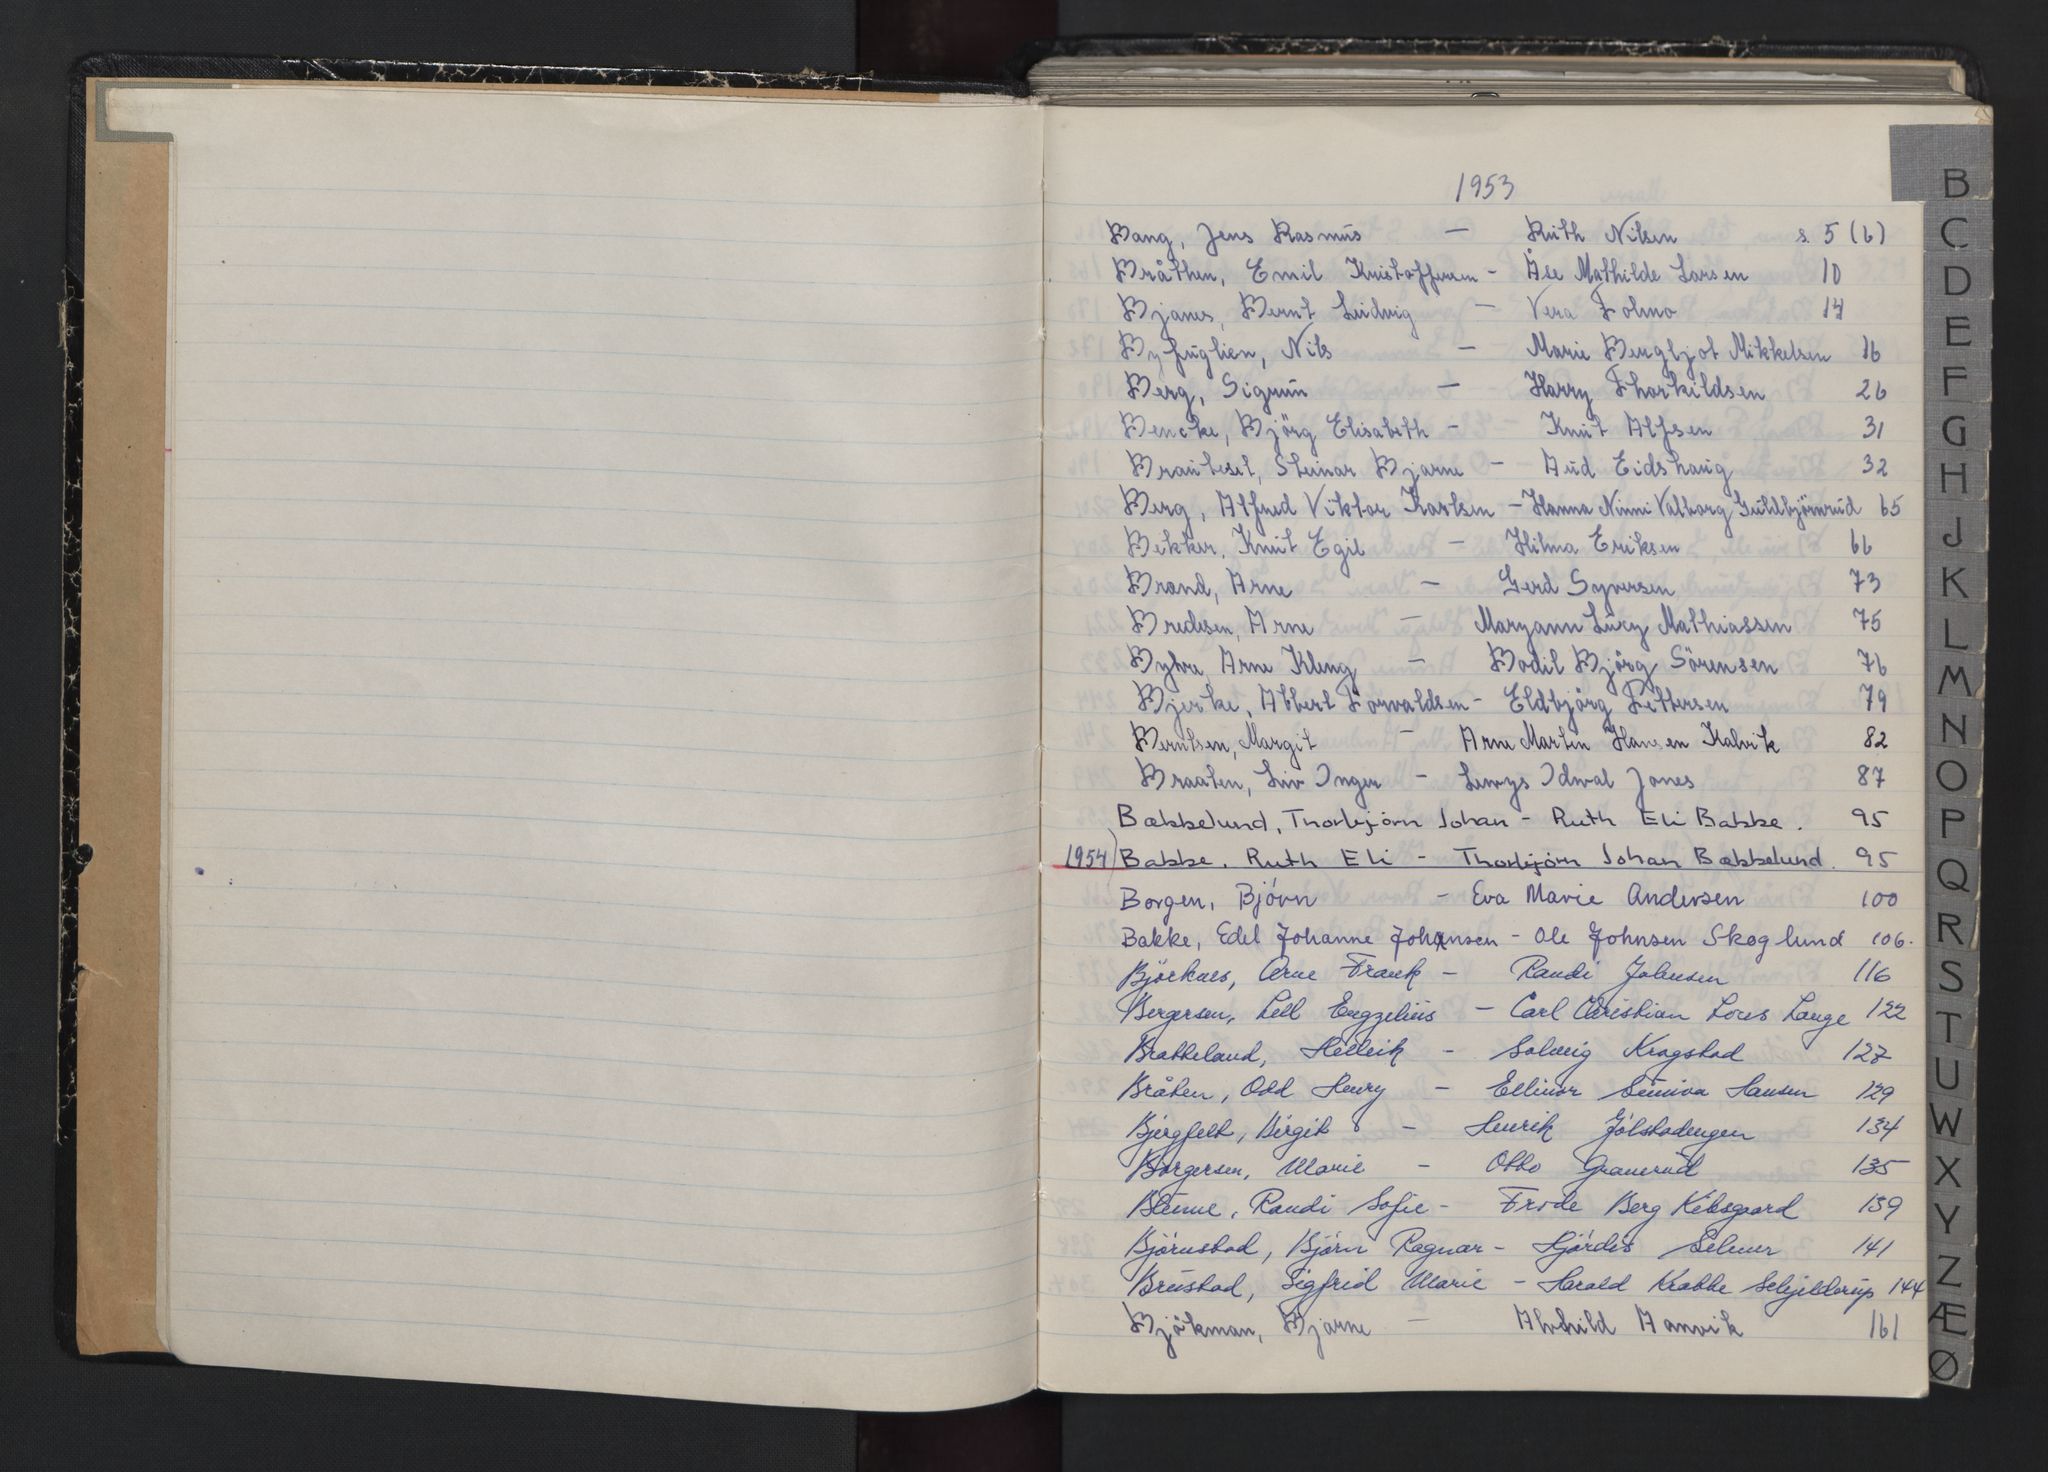 1953
Bang, Jens Rasmus — Ruth Nilsen s. 5 (6)
Bråthen, Emil Kristoffersen - Åse Mathilde Larsen 10
Bjanes, Bernt Ludvig — Vera Folmo 14
Byfuglien, Nils — Marie Bergljot Mikkelsen 16
Berg, Sigrun — Harry Thorkildsen 26
Bencke, Bjørg Elisabeth - Knut Alfsen 31
Brauteset, Steinar Bjarne - Aud Eidshaug 32
Berg, Alfred Viktor Karlsen - Hanna Ninni Valborg Guldbjørnrud 65
Bekker, Knut Egil - Hilma Eriksen 66
Brand, Arne - Gerd Syversen 73
Bredesen, Arne - Maryann Lucy Mathiassen 75
Byhre, Arne Kleng - Bodil Bjørg Sörensen 76
Bjerke, Albert Torvaldsen - Eldbjørg Pettersen 79
Berntsen, Margit - Arne Martin Hansen Kalvik 82
Braaten, Liv Inger - Lewys Idwal Jones 87
Bækkelund, Thorbjörn Johan - Ruth Eli Bakke. 95
1954) Bakke, Ruth Eli - Thorbjörn Johan Bækkelund. 95
Borgen, Björn - Eva Marie Andersen 100
Bakke, Edel Johanne Johansen - Ole Johnsen Skoglund 106.
Björknes, Arne Frank - Randi Johnsen 116
Bergersen, Lell Engzelius - Carl Christian Lous Lange 122
Brakkeland, Helleik - Solveig Kragstad 127
Bråten, Odd Henry - Ellinor Sunniva Hansen 129
Bjergfelt, Birgit - Henrik Jølstadengen 134
Børgersen, Marie - Otto Granerud 135
Blunne, Randi Sofie - Frode Berg Kibsgaard 139
Björnstad, Björn Ragnar - Hjördis Selmer 141
Brustad, Sigfrid Marie - Harald Krabbe Schjelderup 144
Bjökman, Bjarne - Alvhild Aanvik 161
B
C
D
E
F
G
H
J
K
L
M
N
O
P
Q
R
S
T
U
W
X
Y
Z
Æ
Ø